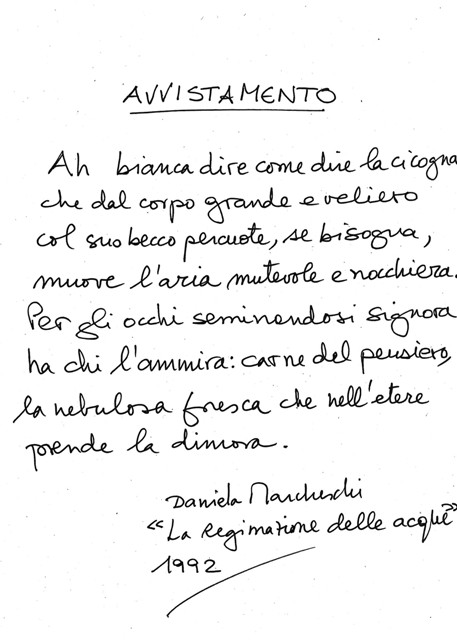 AVVISTAMENTO
Ah bianca dire come dire la cicogna
che dal corpo grande e veliero
col suo becco percuote, se bisogna,
muove l'aria mutevole e nocchiera.
Per gli occhi seminandosi signora
ha chi l'ammira: carne del pensiero,
la nebulosa fresca che nell'etere
prende la dimora.
Daniela Marcheschi
"La Regimazione delle acque"
1992